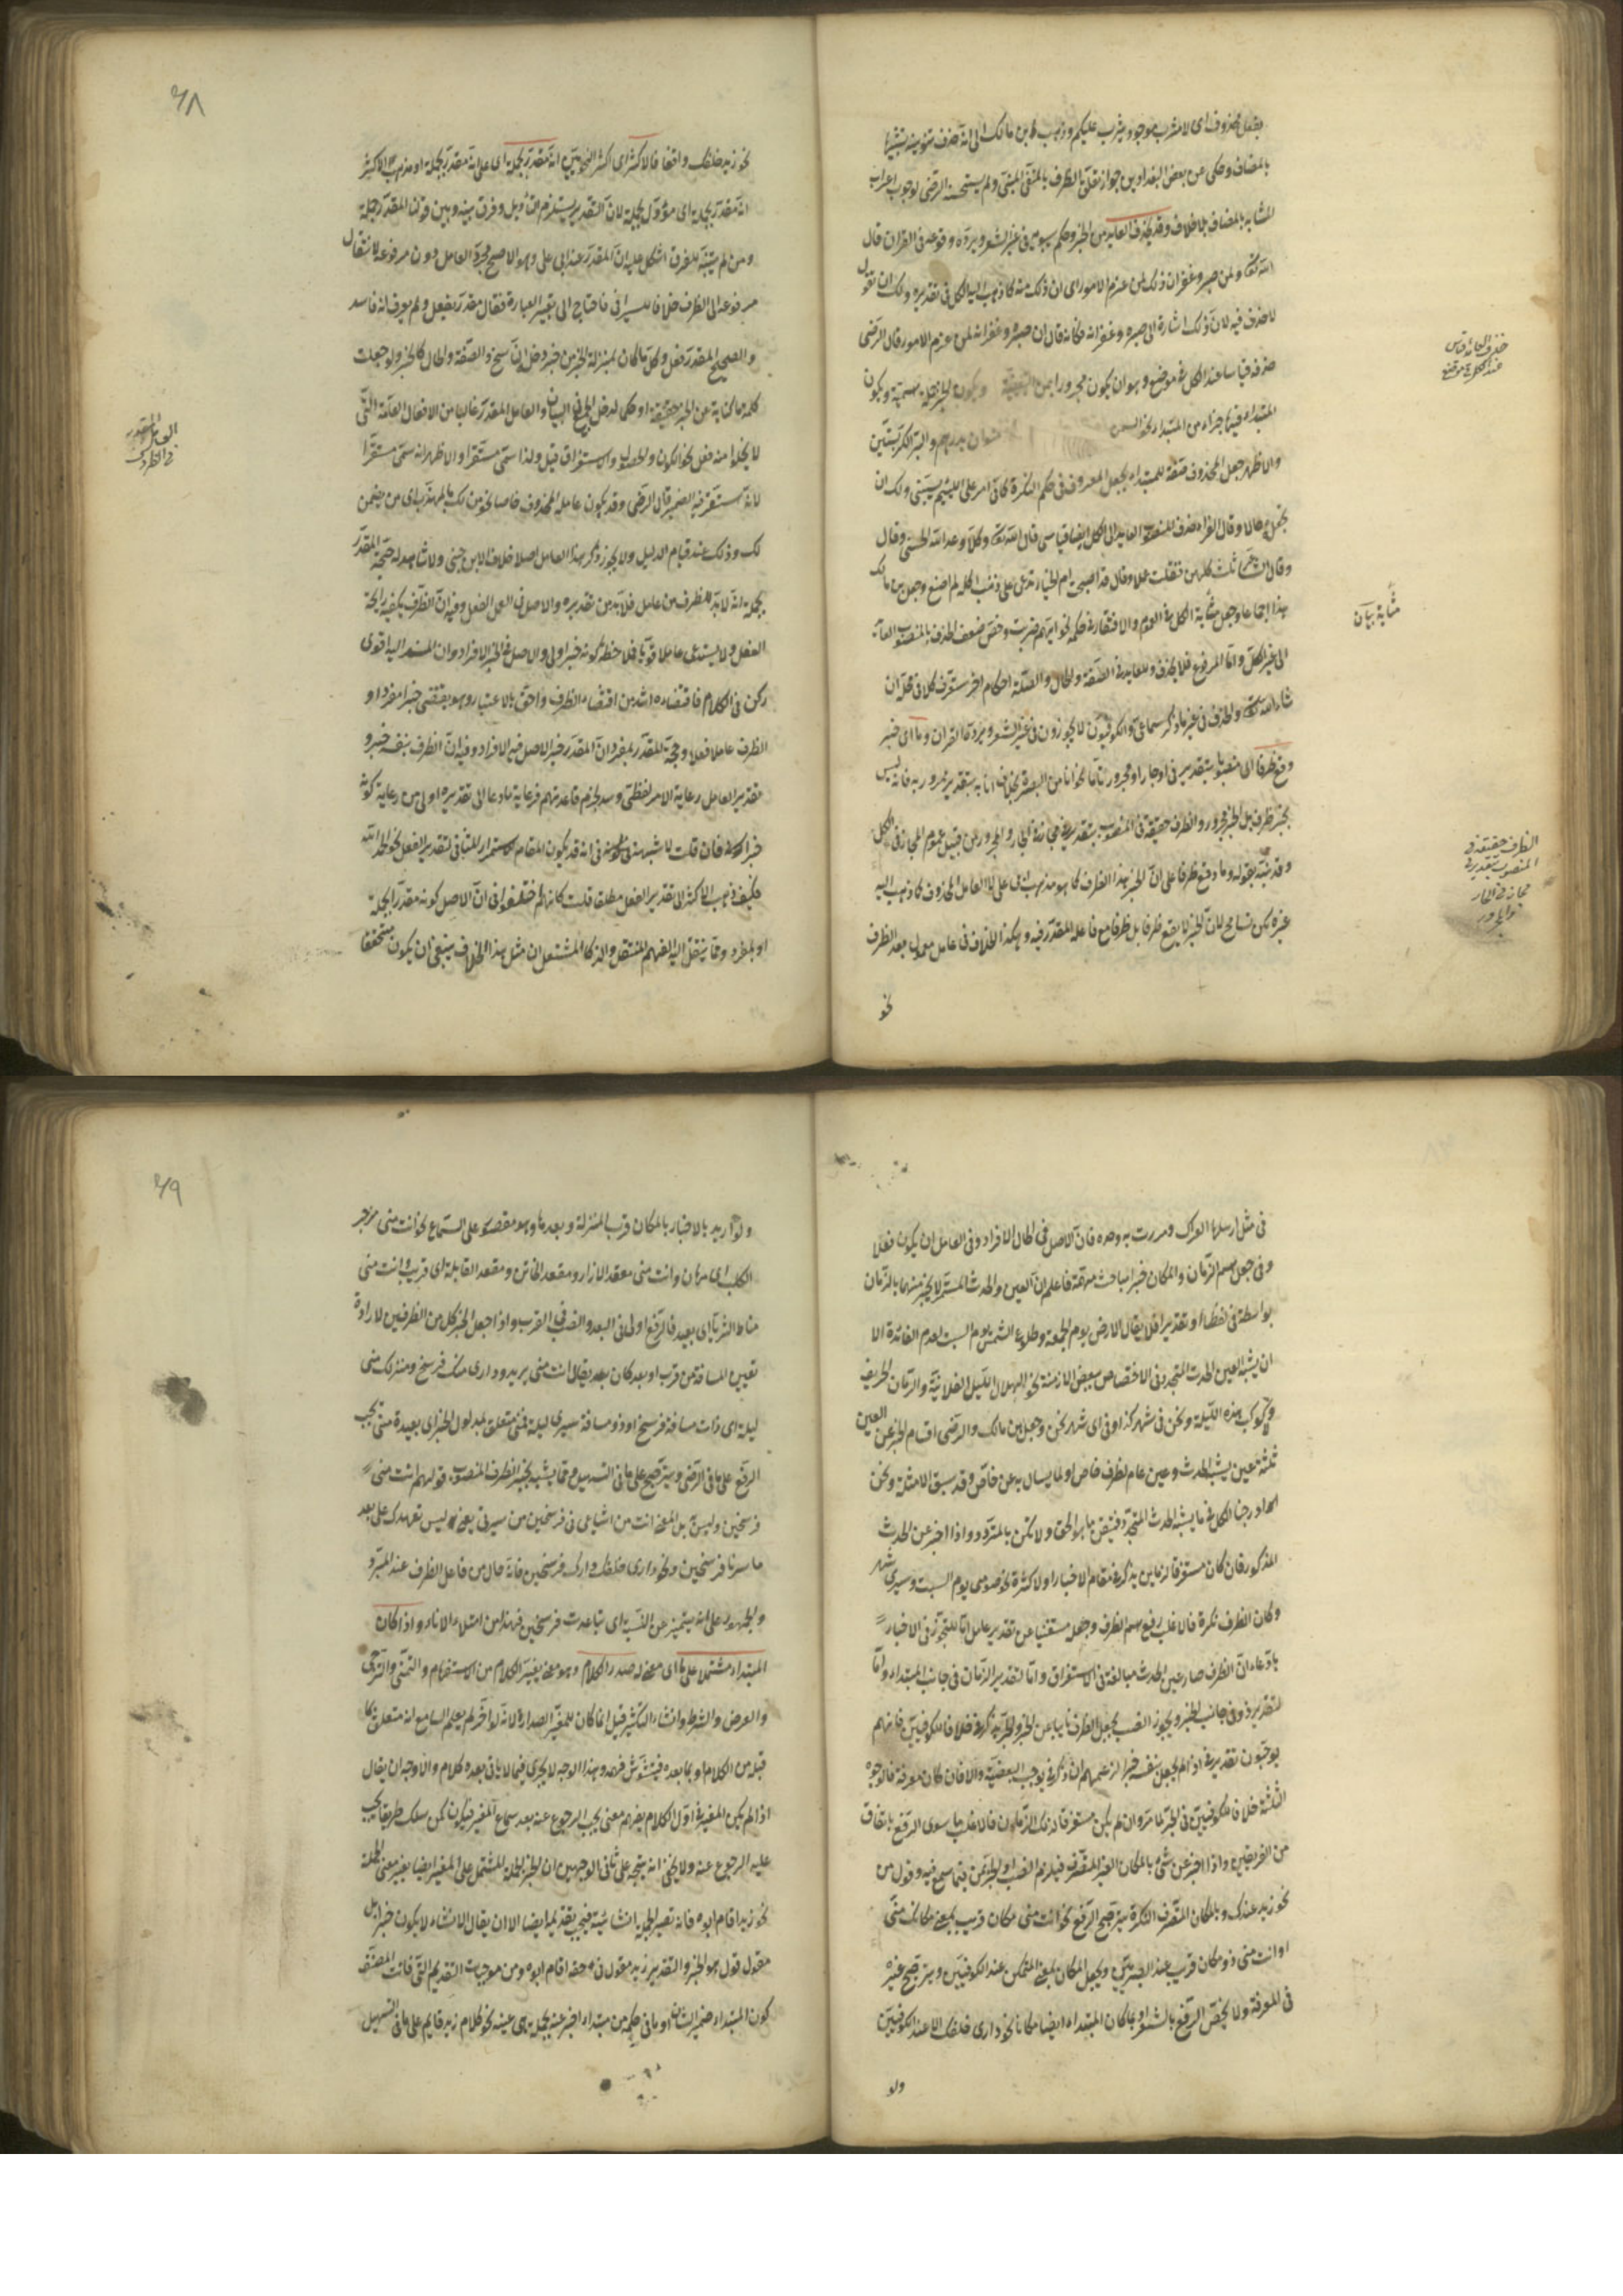 بفعل محذوف اى لا مثرب موجود يثرب عليكم وذهب ابن مالك الى انه حذف تنوينه تشبيها
بالمضاف وحكى عن بعض البغداديين جواز تعلق الظرف بالمنفى المبنى ولم يستحسنه الرضى لوجوب اعراب
المشابه بالمضاف بلا خلاف وقد يحذف العايد من الخبر وحكم سيبويه فى غير الشعر ويرده وقوعه فى القران قال
الله تعالى ولمن صبر وغفر ان ذلك لمن عزم الامور اى ان ذلك منه كما ذهب اليه الكل فى تقديره ولك ان تقول
لا حذف فيه لان ذلك اشارة الى صبره وغفرانه فكانه قال ان صبره وغفرانه لمن عزم الامور قال الرضى
حذفه قياسا عند الكل فى موضع وهو ان يكون مجرورا بمن ويكون الخبر جملة اسمية ويكون
المبتداء فيها جزء من المبتداء نحو السمن منوان بدرهم والبر الكر بستين
والاظهر جعل المحذوف صفة للمبتداء بجعل المعروف فى حكم النكرة كما فى امر على اللئيم يسبنى ولك ان
تجعله حالا وقال الفراء يحذف المنصوب العايد الى الكل ايضا قياسى قال الله تعالى وكلا وعد الله الحسنى وقال
وقال الشاعر ثلث كلهن قتلت عمدا وقال قد اصبحت ام الخيار تدعى على ذنبا كله لم اصنع وجعل بن مالك
هذا اجماعا وجعل مثابة الكل فى العموم والافتقار فى حكمه نحو ايهم ضربت وخص ضعف الحذف بالمنصوب العائد
الى غير الكل واما المرفوع فلا يحذف وللعايد فى الصفة والحال والصلة احكام اخر ستعرف كلا فى محله ان
شاء الله تعالى والحذف فى غير ما ذكر سماعى والكوفيون لا يجوزون فى غير الشعر ويرده القران وما اى خبر
وقع ظرفا اى منصوبا بتقدير فى او جارا ومجرورا
بخبر ظرف بل الخبر مجرور والظرف حقيقة فى المنصوب بتقدير فى مجاز فى الجار والمجرور من قبيل عموم المجاز فى الكل
وقد نبه بقوله وما وقع ظرفا على ان الخبر هذا الظرف كما هو مذهب ابى على لا العامل المحذوف كما ذهب اليه
غيره لكن تسامح لان الخبر لا يقع ظرفا بل ظرفا مع فاعله المقدر فيه وهكذا الخلاف فى عامل معمول بعد الظرف
نحو
حذف العائد قياس
عند الكل فى موضع
مثابة بيان
الظرف حقيقة فى
المنصوب بتقدير فى
مجاز فى الجار
والمجرور
٦٨
نحو زيد خلفك واقفا فالاكثر اى اكثر النحويين انه مقدر بجملة اى على انه مقدر بجملة او مذهب الاكثر
انه مقدر بجملة اى مؤول بجملة لان التقدير يستلزم التأويل وفرق بينه وبين قولنا المقدر جملة
ومن لم يتنبه للفرق اشكل عليه ان المقدر عند ابى على وهو الاصح مجرد العامل دون مرفوعه لانتقال
مرفوعه الى الظرف خلافا للسيرافى فاحتاج الى تغيير العبارة فقال مقدر بفعل ولم يعرف انه فاسد
والصحيح المقدر فعل وكل ما كان بمنزلة الخبر من خبر دخل ان نسخ والصفة والحال كالخبر ولو جعلت
كلمة ما كناية عن الخبر حقيقة او حكما لدخل الجميع فى البيان والعامل المقدر غالبا من الافعال العامة التى
لا يخلو منه فعل نحو الكون والحصول والاستقرار قيل ولذا سمى مستقرا والاظهر انه سمى مستقرا
لانه استقر فيه الضمير قال الرضى وقد يكون عامله المحذوف خاصا نحو من لك بالمهذب اى من يضمن
لك وذلك عند قيام الدليل ولا يجوز ذكر هذا العامل اصلا خلافا لابن جنى ولا شاهد له حجة المقدر
بجملة انه لابد للظرف من عامل فلابد من تقديره والاصل فى العمل الفعل وفيه ان الظرف يكفيه رايحة
الفعل ولا يستدعى عاملا قويا فلا حظ كونه خبرا ولى والاصل فى الخبر الافراد وان المسند اليه اقوى
ركن فى الكلام فاقتضاءه اشد من اقتضاء الظرف واحق بالاعتبار وهو يقتضى خبرا مفردا و
الظرف عاملا فعلا وحجة المقدر بمفرد ان المقدر خبر الاصل فيه الافراد وفيه ان الظرف بنفسه خبر و
تقدير العامل رعاية الامر لفظى وسد لخرم قاعدتهم فرعاية ما دعا الى تقديره اولى من رعاية كونه
فكيف ذهب الاكثر الى تقدير الفعل مطلقا قلت كانهم اتفقوا فى ان الاصل كونه مقدرا بجملة
او بمفرد ومما ينتقل اليه الفهم المنتقل والذكاء المشتعل ان مثل هذا الخلاف ينبغى ان يكون متحققا
العامل المقدر
فى الظرف
فى مثل ارسلها العراك ومررت به وحده فان الاصل فى الحال الافراد وفى العامل ان يكون فعلا
وفى جعل اسم الزمان والمكان خبرا مباحث مهمة فاعلم ان العين والحدث المستمر لا يخبر عنهما بالزمان
بواسطة فى لفظا او تقديرا فلا يقال الارض يوم الجمعة وطلوع الشمس يوم السبت لعدم الفائدة الا
ان يشبه العين الحدث المتجدد فى الاختصاص ببعض الازمنة نحو الهلال الليل الفلانية والرمان الخريف
والكوكب هذه الليلة ونحن فى شهر كذا وفى اى شهر نحن وجعل بن مالك والرضى اقسام الخبر عن العين
ثلثة عين يشبه الحدث وعين عام لظرف خاص او لما يسال به عن خاص وقد سبق الامثلة ونحن
ادرجنا الكل فى ما يشبه الحدث المتجدد فتيقن ما هو الحق ولا تكن بالمتردد واذا اخبر عن الحدث
المذكور فان كان مستغرقا لزمان يذكر فى مقام الاخبار او لاكثره نحو صومى يوم السبت وسيرى شهر
وكان الظرف نكرة فالاغلب رفع اسم الظرف وجعله مستغنيا عن تقدير عامل اما للتجوز فى الاخبار
بادعاء ان الظرف صار عين الحدث مبالغة فى الاستغراق واما لتقدير الزمان فى جانب المبتداء واما
لتقدير ذو فى جانب الخبر ويجوز النصب بجعل الظرف نايبا عن الخبر والجر بذكر فى خلافا للكوفيين فانهم
يوجبون تقدير فى اذا لم يجعل بنفسه خبرا لزعمهم ان ذكر فى يوجب البعضية والا فان كان معرفة فالوجوه
الثلثة خلافا للكوفيين فى الجر لما مر وان لم يكن مستغرقا لذلك الزمان فالاغلب ما سوى الرفع باتفاق
من الفريقين واذا اخبر عن شئ بالمكان الغير المتصرف فيلزم النصب او الجر بمن فيما سمع فيه دخول من
نحو زيد عندك وبالمكان المتصرف النكرة يترجح الرفع نحو انت منى مكان قريب بمعنى مكانك منى
او انت منى ذو مكان قريب عند البصريين وبجعل المكان بمعنى المتمكن عند الكوفيين ويترجح غيره
فى المعرفة ولا يختص الرفع بالشعر او بما كان المبتداء ايضا مكانا نحو دارى خلفك الا عند الكوفيين
ولو
٦٩
ولو اريد بالاخبار بالمكان قرب المنزلة وبعدها وهو مقصور على السماع نحو انت منى مزجر
الكلب اى مهان وانت منى معقد الازار ومقعد الخاتن ومقعد القابلة اى قريب وانت منى
مناط الثريا اى بعيد فالرفع اولى فى البعد والنصب فى القرب واذا جعل الخبر كل من الظرفين لارادة
تعيين المسافة من قرب او بعد كان بعد يقال انت منى بريد ودارى منك فرسخ ومنزلك منى
ليلة اى ذات مسافة فرسخ او ذو مسافة سيرى ليلة فمنى متعلق بمدلول الخبر اى بعيدة منى يجب
الرفع على ما فى الرضى ويترجح على ما فى التسهيل ومما يشبه بخبر الظرف المنصوب قولهم انت منى
فرسخين وليس بل المعنى انت من اشياعى فى فرسخين من سيرتى يعنى ليس تعهدك على بعد
ما سرنا فرسخين ونحو دارى خلف دارك فرسخين فانه حال من فاعل الظرف عند المبرد
والجمهور على انه تمييز عن النسبة اى تباعدت فرسخين فهذا من امتلاء الاناء واذا كان
المبتداء مشتملا على ما اى معنى له صدر الكلام وهو معنى يغير الكلام من الاستفهام والتمنى والترجى
والعرض والشرط وانشاء التكثير قيل انما كان للمغير الصدارة لانه لو اخر لم يعلم السامع انه متعلق بما
قبله من الكلام او بما بعده فيتشوش فهمه وهذا الوجه لا يجرى فيما لا يأتى بعده كلام والاوجه ان يقال
اذا لم يكن المغير فى اول الكلام يفهم معنى يجب الرجوع عنه بعد سماع المغير فيكون كمن سلك طريقا يجب
عليه الرجوع عنه ولا يخفى انه يتجه على ثانى الوجهين ان الخبر الجملة المشتمل على المغير ايضا يغير معنى الجملة
نحو زيد اقام ابوه فانه تصير الجملة انشائية فيجب تقديمها ايضا الا ان يقال الانشاء لا يكون خبرا بل
مقول قول هو الخبر والتقدير زيد مقول فى حقه اقام ابوه ومن موجبات التقديم التى فاتت المصنف
كون المبتداء ضمير الشان او ما فى حكمه من مبتداء اخبر عنه بجملة هى عينه نحو كلام زيد قايم على ما فى التسهيل